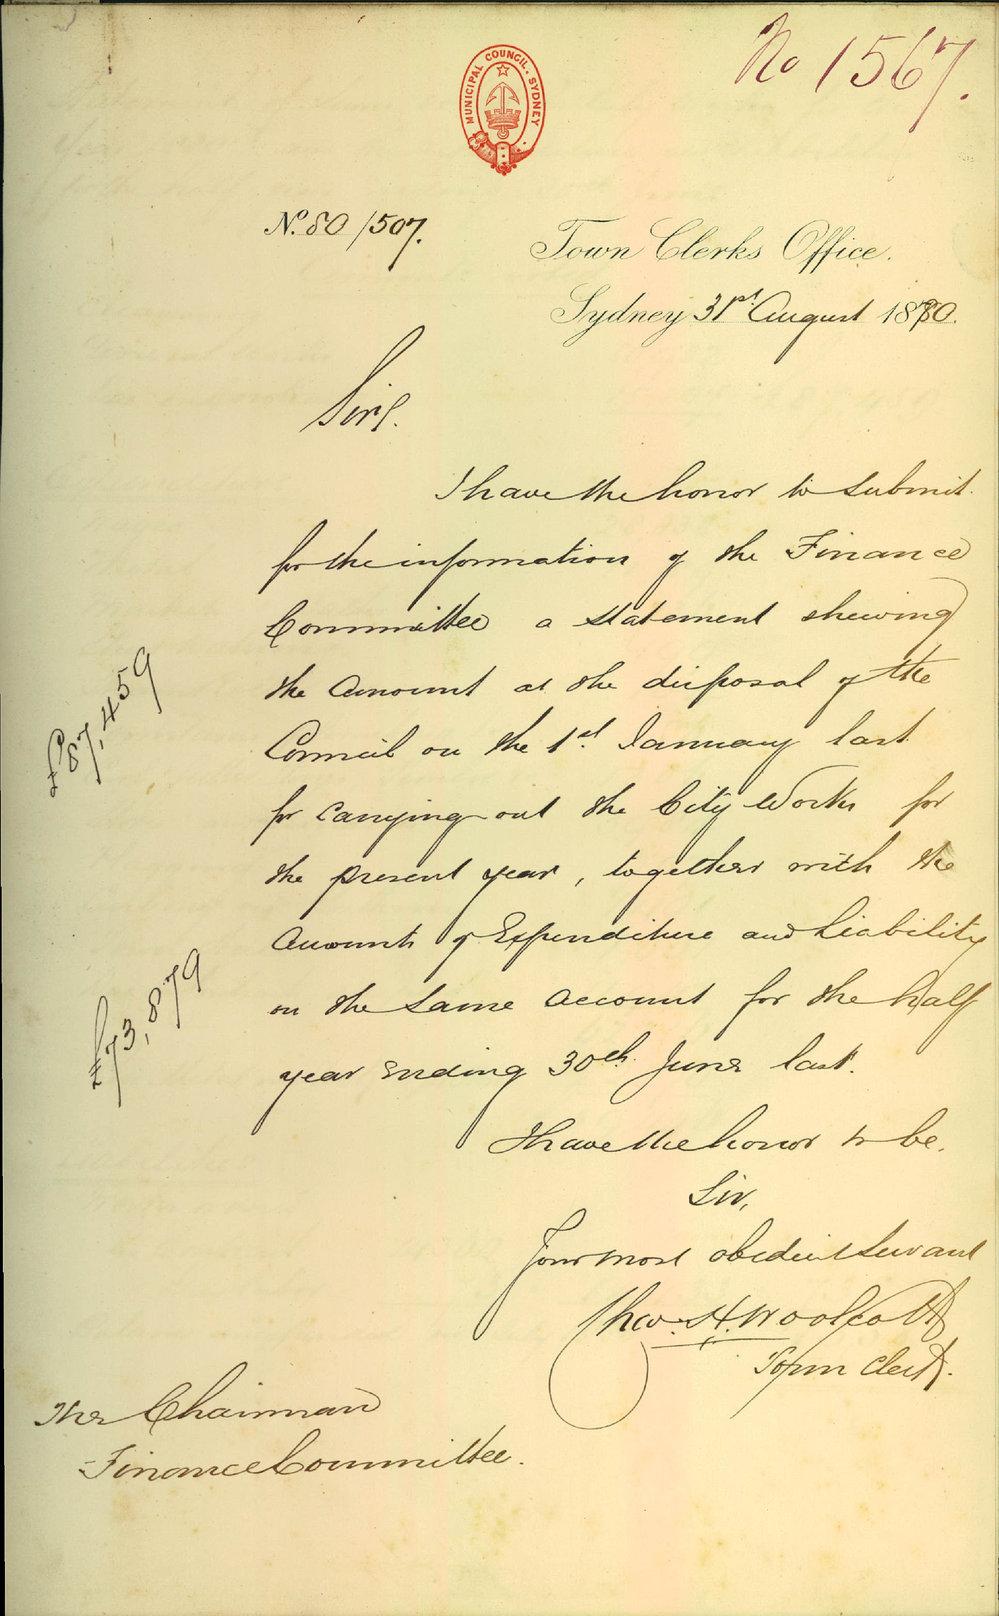 No 1567.
MUNICIPAL COUNCIL. SYDNEY
No. 80/507.
Town Clerks Office.
Sydney 31st August 1880.
Sir,
I have the honor to submit
for the information of the Finance
Committee a statement shewing
the Amount at the disposal of the
£87,459
Council on the 1st January last
for carrying out the City Works for
the present year, together with the
Amounts of Expenditure and Liability
£73,879
on the same account for the half
year ending 30th June last.
I have the honor to be,
Sir,
Your most obedient Servant
Chas. H. Woolcott
Town Clerk.
The Chairman
Finance Committee.